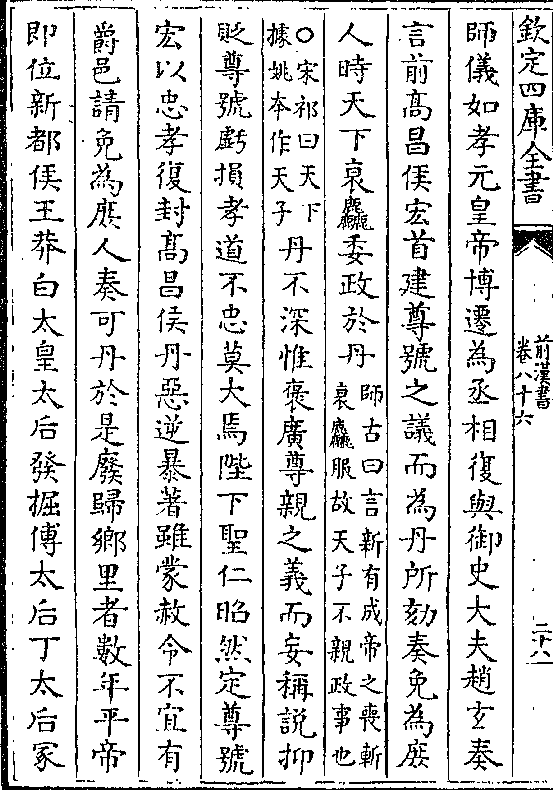 欽定四庫全書
前漢書
卷八十六
二十八
師儀如孝元皇帝博遷為丞相復與御史大夫趙玄奏
言前髙昌侯宏首建尊號之議而為丹所劾奏免為庶
人時天下衰麤委政於丹師古曰言新有成帝之喪斬衰麤服故天子不親政事也
○宋祁曰天下據姚本作天子丹不深惟褒廣尊親之義而妄稱説抑
貶尊號虧損孝道不忠莫大焉陛下聖仁昭然定尊號
宏以忠孝復封髙昌侯丹惡逆暴著雖蒙赦令不宜有
爵邑請免為庶人奏可丹於是廢歸鄉里者數年平帝
即位新都侯王莽白太皇太后發掘傅太后丁太后冢